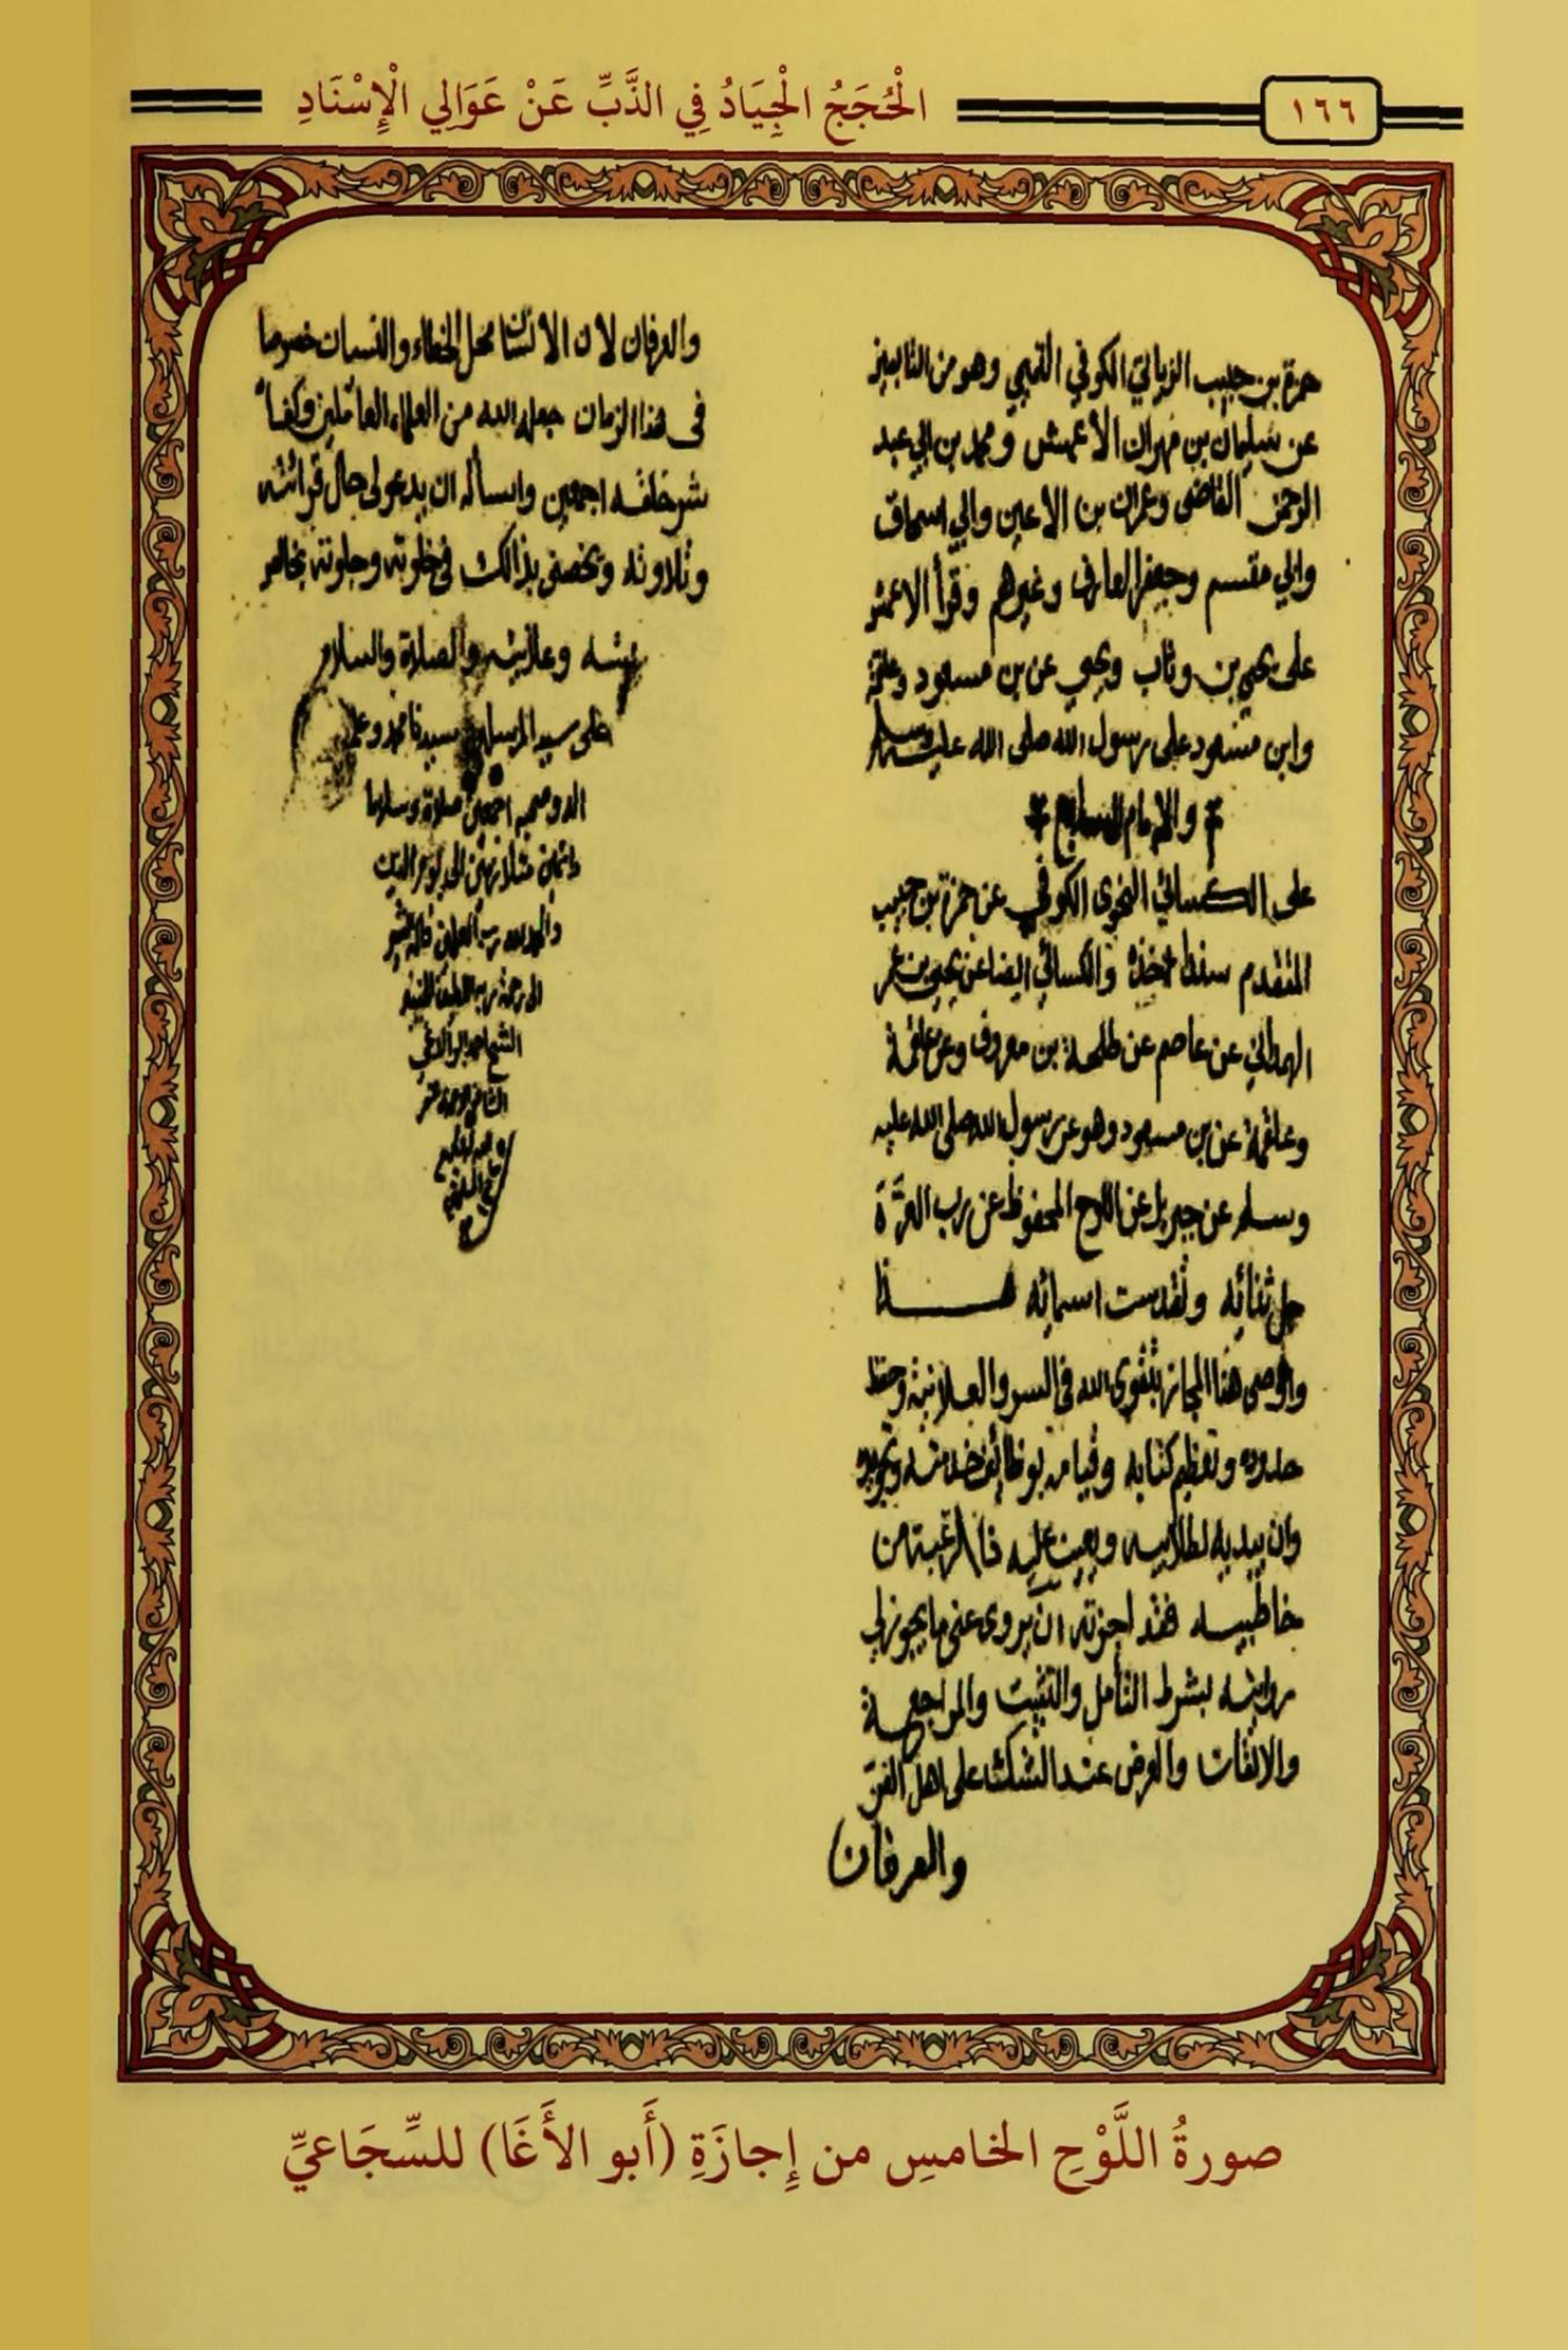 ١٦٦
الْحُجَجُ الْجِيَادُ فِي الذَّبِّ عَنْ عَوَالِي الْإِسْنَادِ
حمزة بن حبيب الزياتي الكوفي التميمي وهو من التابعين
عن سليمان بن مهران الأعمش ومحمد بن ابي عبد
الرحمن القاضي وعمران بن الاعين وابي اسحاق
وابي مقسم وجعفر العارف وغيرهم وقرأ الاعمش
على يحيى بن وثاب ويحيى عن بن مسعود وعلقمة
وابن مسعود على رسول الله صلى الله عليه وسلم
والامام السابع
على الكسائي النحوي الكوفي عن حمزة بن حبيب
المتقدم سنده والكسائي ايضا عن يحيى بن عمر
الهمداني عن عاصم عن طلحة بن معروف وعن علقمة
وعلقمة عن بن مسعود وهو عن رسول الله صلى الله عليه
وسلم عن جبريل عن اللوح المحفوظ عن رب العزة
جل ثنائه وتقدست اسمائه هذا
واوصي هذا المجاز بتقوى الله في السر والعلانية وحفظ
حدوده وتعظيم كتابه وقيامه بوظائف خدمته وتجويده
وان يبديه لطلابيه ويعين عليه
خاطبيه فقد اجزته ان يروى عني ما يجوز لي
روايته بشرط التأمل والتثبت والمراجعة
والاتقان والعرض عند الشك على اهل الفن
والعرفان
والعرفان لان الانسان محل الخطاء والنسيان خصوصا
في هذا الزمان جعله الله من العلماء العاملين وكفاه
شر خلقه اجمعين واسأله ان يدعو لي حال قرائته
وتلاوته ويخصني بذالك في خلوته وجلوته بخالص
نيته وعلانيته والصلاة والسلام
على سيد المرسلين سيدنا محمد وعلى
اله وصحبه اجمعين صلاة وسلاما
دائمين متلازمين الى يوم الدين
والحمد لله رب العلمين قاله الفقير
الى رحمة ربه
الشيخ احمد ابو الاغا
صورةُ اللَّوْحِ الخامسِ من إِجازَةِ (أَبو الأَغَا) للسِّجَاعيِّ